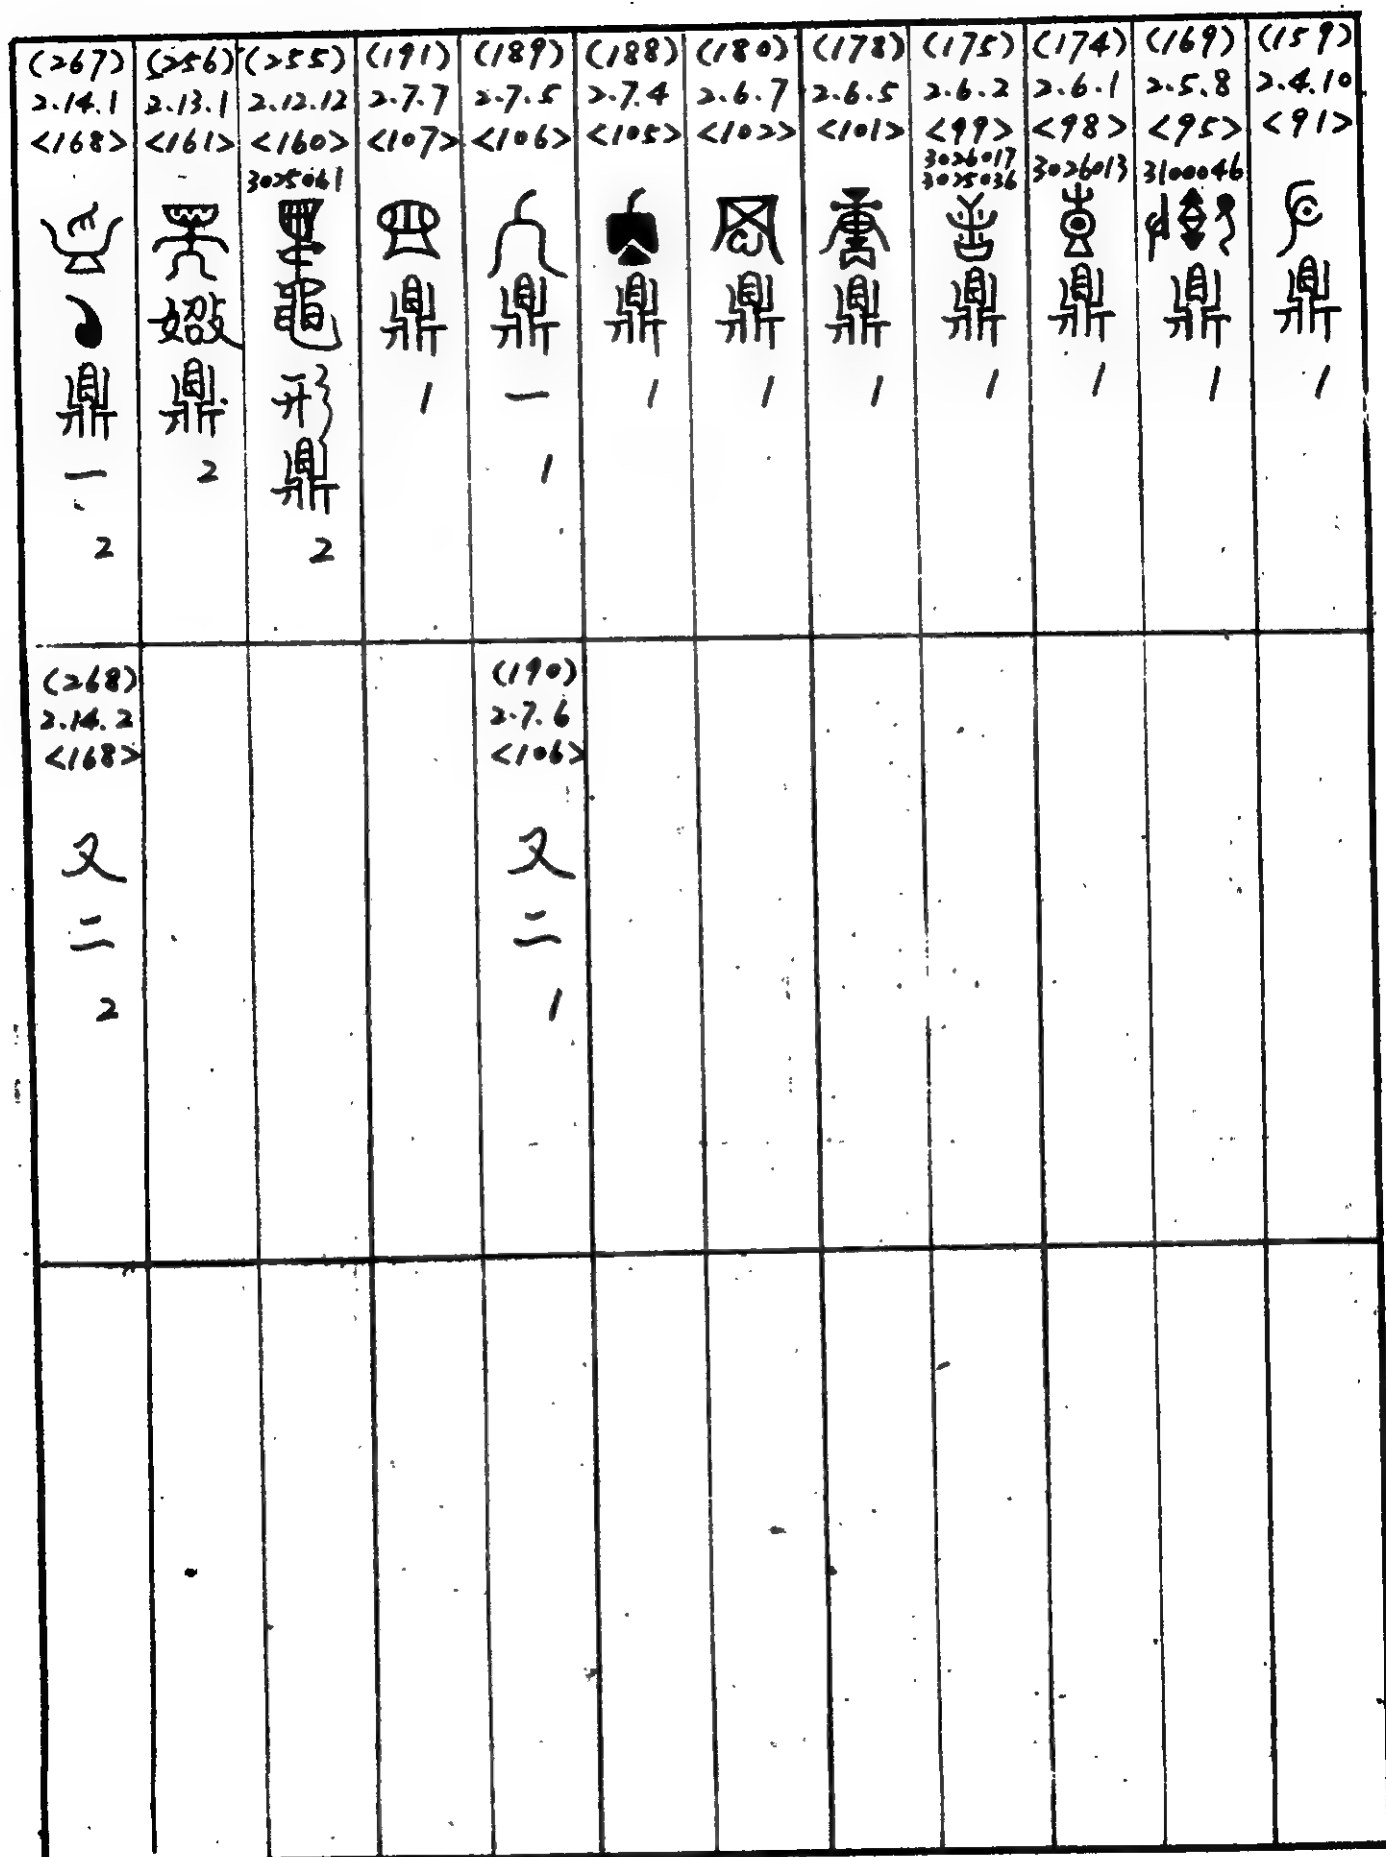 (159)
2.4.10
<91>
鼎
1
(169)
2.5.8
<95>
3100046
鼎
1
(174)
2.6.1
<98>
3026013
鼎
1
(175)
2.6.2
<99>
3026017
3025036
鼎
1
(178)
2.6.5
<101>
鼎
1
(180)
2.6.7
<102>
鼎
1
(188)
2.7.4
<105>
鼎
1
(189)
2.7.5
<106>
鼎
一
1
(190)
2.7.6
<106>
又
二
1
(191)
2.7.7
<107>
鼎
1
(255)
2.12.12
<160>
3025061
鼎
2
(256)
2.13.1
<161>
鼎
2
(267)
2.14.1
<168>
鼎
一
2
(268)
2.14.2
<168>
又
二
2